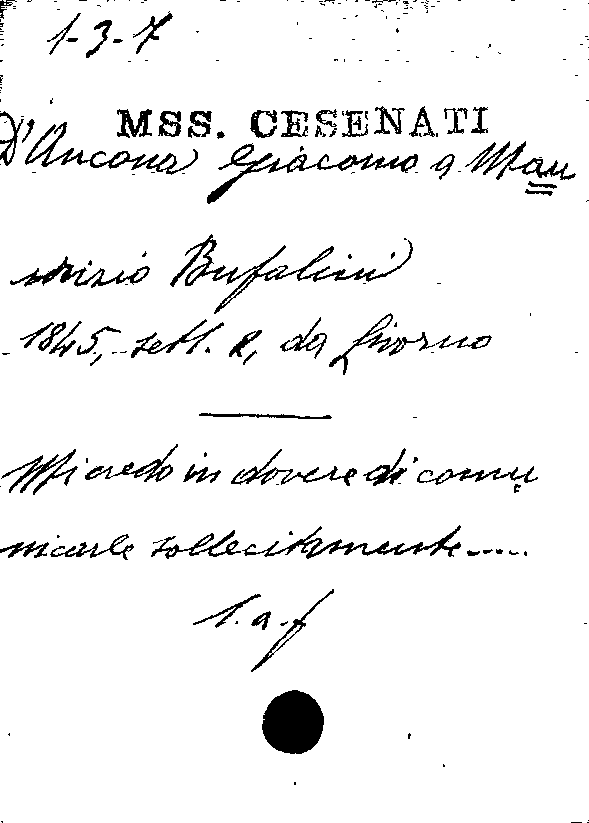 1-3-7
MSS. CESENATI
D'Ancona Giacomo a Mau
rizio Bufalini
1845, sett. 2, da Livorno
Mi credo in dovere di comu
nicarle sollecitamente.....
l.a.f